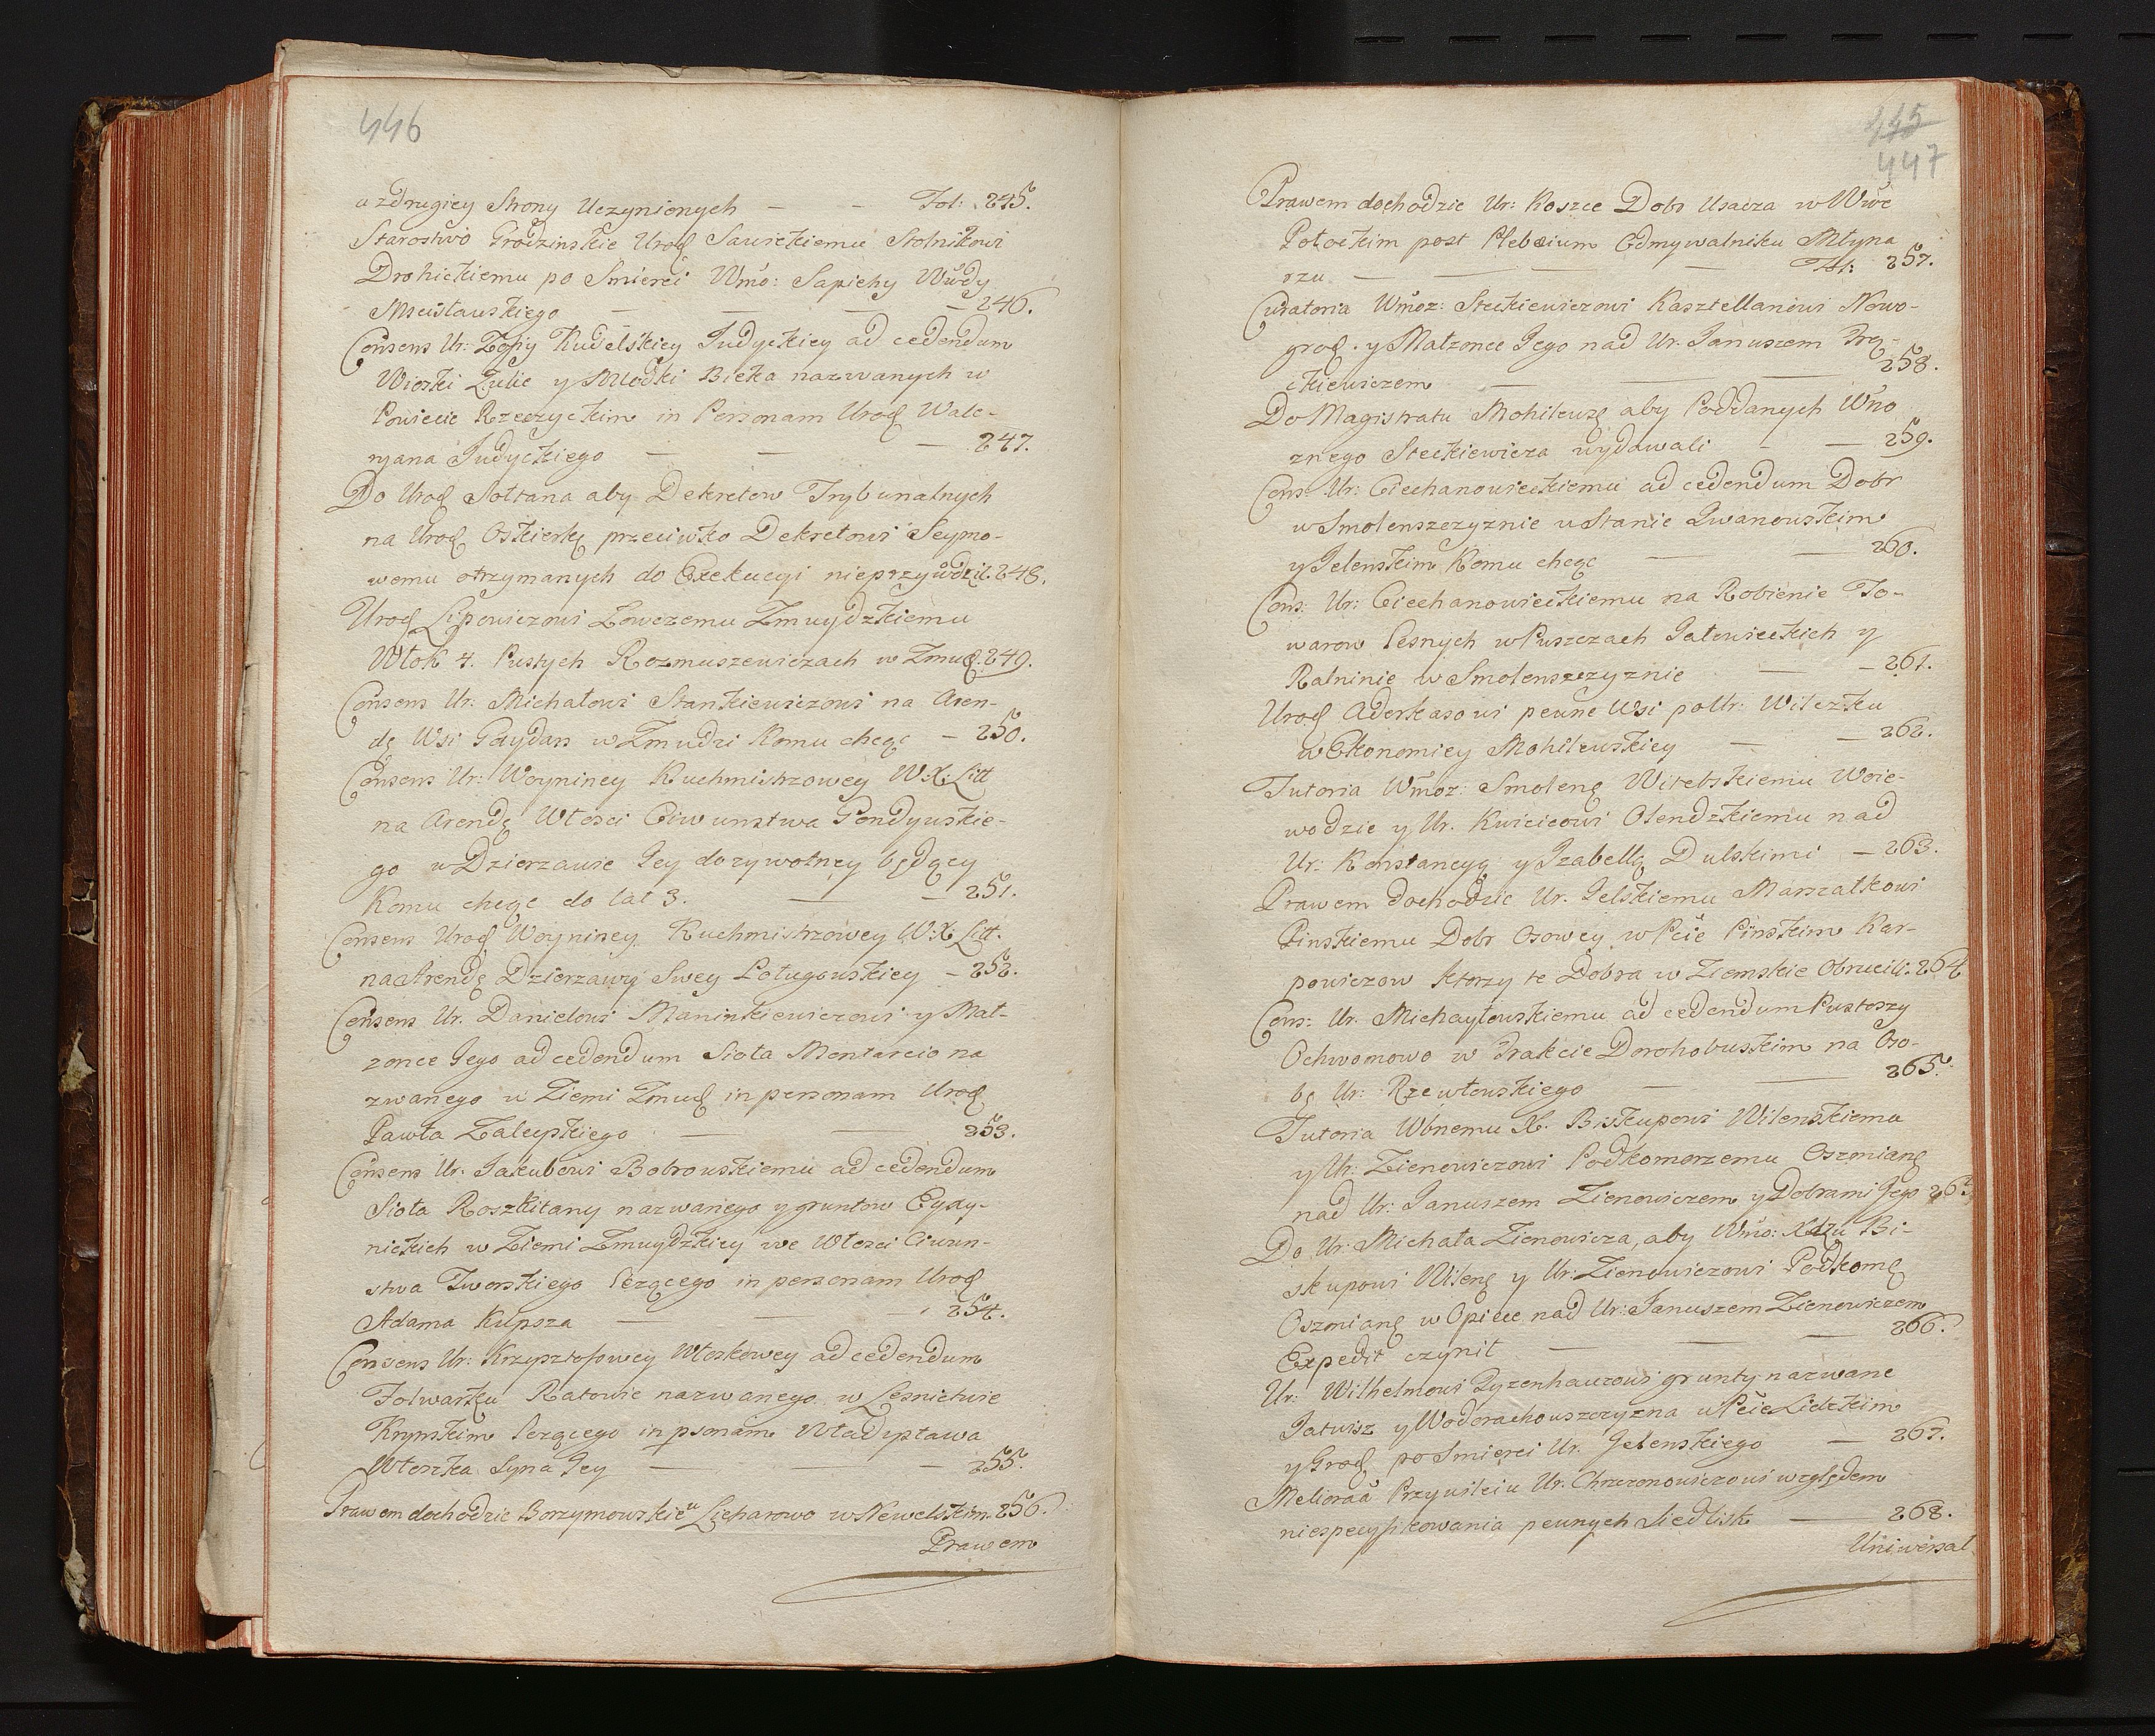 446
a z drugiey Strony Uczynionych — — Fol: 245.
Starostwo Grodzinskie Urodz Sawickiemu Stolnikowi
Drohickiemu po Smierci Wmo: Sapiehy Wwdy
Mscisławskiego — — — 246.
Consens Ur: Zofiy Kudelskiey Judyckiey ad cedendum
Wioski Zulie y Młodki Bieka nazwanych w
Powiecie Rzeczyckim in Personam Urodz Wale-
ryana Judyckiego — — — 247.
Do Urodz Sołtana aby Dekretow Trybunalnych
na Urodz Oskierkę przeciwko Dekretowi Seymo-
wemu otrzymanych do Exekucyi nieprzywodził. 248.
Urodz Lipowiczowi Łowczemu Zmuydzkiemu
Włok 4. Pustych Rozmuszewiczach w Zmudz. 249.
Consens Ur. Michałowi Stankiewiczowi na Aren-
dę Wsi Gaydan w Zmudzi Komu chcąc — 250.
Consens Ur: Woyniney Kuchmistrzowey W: X: Litt
na Arendę Włosci Ciwunstwa Gondyuskie-
go w Dzierzawie Jey dozywotney będącey
Komu chcąc do lat 3. — — 251.
Consens Urodz Woyniney Kuchmistrzowey W: X: Litt.
na Arendę Dzierzawy Swey Poługowskiey — 252.
Consens Ur. Danielowi Maninkiewiczowi y Mał-
zonce Jego ad cedendum Sioła Montarcio na
zwanego w Ziemi Zmudz in personam Urodz
Pawła Zaleskiego — — 253.
Consens Ur. Jakubowi Bobrowskiemu ad cedendum
Sioła Roszkitany nazwanego y gruntow Eyxy-
nickich w Ziemi Zmuydzkiey we Włosci Ciwun-
stwa Tworskiego lezącego in personam Urodz
Adama Kupsza — — 254.
Consens Ur: Krzysztofowey Włoskowey ad cedendum
Folwarku Ratowie nazwanego w Lesnictwie
Krynskim lezącego in psonam Władysława
Włoszka Syna Jey — — 255.
Prawem dochodzic Borzymowskieu Licharowo w Newelskim. 256.
Prawem
445
447
Prawem dochodzic Ur: Koszce Dobr Usacza w Wwe
Połockim post Plebeium Odmywalniku Młyna
rzu — — — Fol: 257.
Curatoria Wmoz: Steckiewiczowi Kasztellanowi Nowo-
grodz. y Małzonce Jego nad Ur. Januszem Prą-
ckiewiczem — — — 258.
Do Magistratu Mohilewz aby Poddanych Wno
znego Steckiewicza wydawali — — 259.
Cons: Ur: Ciechanowieckiemu ad cedendum Dobr
w Smolenszczyznie w Stanie Iwanowskim
y Jelenskim Komu chcąc — — 260.
Cons: Ur: Ciechanowieckiemu na Robienie To-
warow lesnych w Puszczach Jałowieckich y
Ratninie w Smolenszczyznie — — 261.
Urodz Aderkasowi pewne Wsi po Ur: Wilczku
w Ekonomiey Mohilewskiey — — 262.
Tutoria Wmoz: Smolenz Witebskiemu Woie-
wodzie y Ur. Kwicicowi Olendzkiemu nad
Ur: Konstancyą y Izabellą Dulskimi — 263.
Prawem dochodzic Ur. Jelskiemu Marszałkowi
Pinskiemu Dobr Osowey w Pcie Pinskim Kar-
powiczow ktorzy te Dobra w Ziemskie Obrucili: 264
Cons: Ur. Michayłowskiemu ad cedendum Pustoszy
Ochwomowo w Trakcie Dorohobuskim na Oso-
bę Ur: Rzewłowskiego — — 265.
Tutoria Wbnemu X. Biskupowi Wilenskiemu
y Ur: Zienowiczowi Podkomorzemu Oszmianz
nad Ur: Januszem Zienowiczem y Dobrami Jego 265
Do Ur: Michała Zienowicza, aby Wmo: Xdzu Bi-
skupowi Wilenz y Ur: Zienowiczowi Podkomz
Oszmianz w Opiece nad Ur: Januszem Zienowiczem
Expedit czynił — — — 266.
Ur: Wilhelmowi Tyzenhauzowi grunty nazwane
Jatwisz y Wodorachowszczyzna w Pcie Lidzkim
y Grodz po Smierci Ur. Jelenskiego — 267.
Melioraa Przywileiu Ur. Chrzczonowiczowi względem
niespecyfikowania pewnych Siedlisk — 268.
Uniwersał